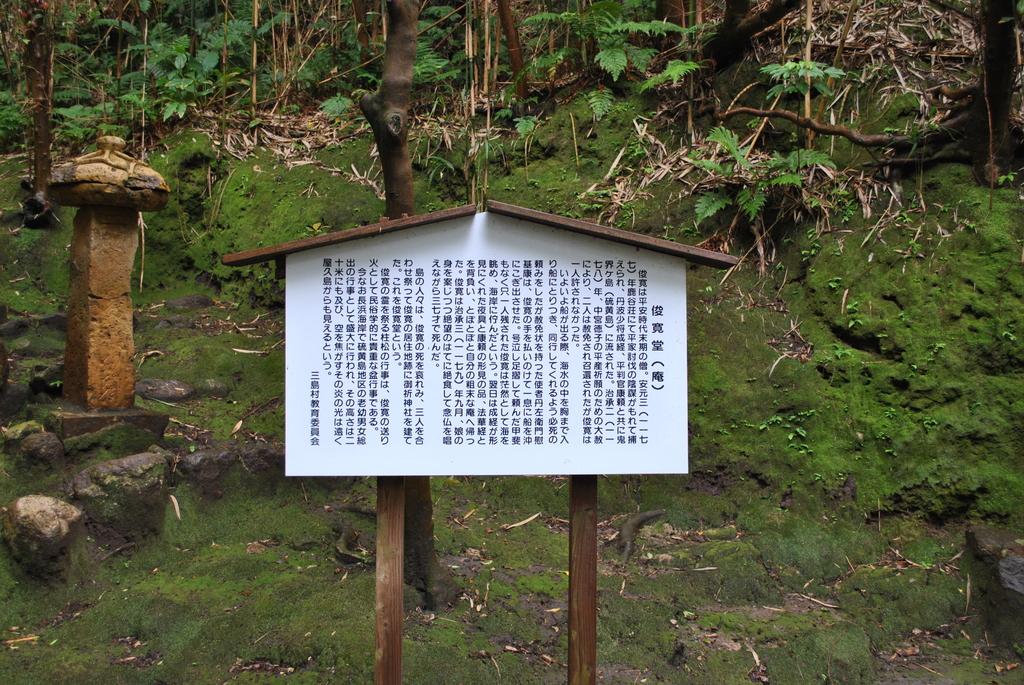 俊寛堂(庵)
俊寛は平安時代末期の僧。安元三(一一七
七)年鹿谷荘にて平家討伐の陰謀がもれて捕
えられ、丹波少将成経、平判官康頼と共に鬼
界ヶ島(硫黄島)に流された。治承二(一一
七八)年、中宮徳子の平産祈願のための大赦
により、二人は赦免され召還されたが俊寛は
一人許されなかった。
いよいよ船が出る際、海水の中を胸まで入
り船にとりつき、同行してくれるよう必死の
頼みをしたが赦免状を持つた使者丹左衛門慰
基康は、俊寛の手を払いのけて一息に船を沖
にこぎ出させた。号泣し足摺して頼んだ甲斐
もなく只一人残された俊寛は茫然として海を
眺め、海岸に佇んだという。翌日は成経が形
見にくれた夜具と康頼の形見の品、法華経と
を背負い、とぼとぼと自分の粗末な庵へ帰っ
た。俊寛は治承三(一一七九)年九月、娘の
身を案じつつ絶望のはてに絶食して念仏を唱
えながら三七才で死んだ。
島の人々は、俊寛の死を哀れみ、三人を合
わせ祭つて俊寛の居住地跡に御祈神社を建て
た。これを俊寛堂という。
俊寛の霊を祭る柱松の行事は、俊寛の送り
火として民俗学的に貴重な盆行事である。
今なお長浜海岸で硫黄島地区の老幼男女総
出の行事として盛大に行われ、その高さは二
十米にも及び、空を焦がすその炎の光は遠く
屋久島からも見えるという。
三島村教育委員会